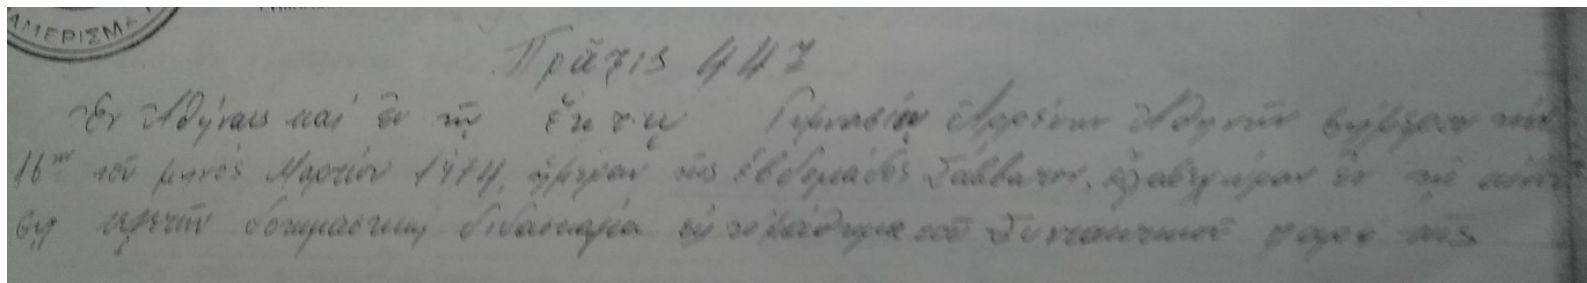 ΑΜΕΡΙΣΜΑ
Πρᾶξις 447
Ἐν Ἀθήναις καί ἐν τῷ ἕκτῳ Γυμνασίῳ Ἀρρένων Ἀθηνῶν σήμερον τήν
16ην τοῦ μηνός Μαρτίου 1974, ἡμέραν τῆς ἑβδομάδος Σάββατον, ἔλαβε χώραν ἐν τῇ
δοκιμαστική διδασκαλία εἰς τό μάθημα τοῦ Συντακτικοῦ παρά τῆς